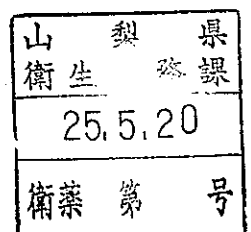 山梨県
衛生務課
25.5.20
衛薬第 号